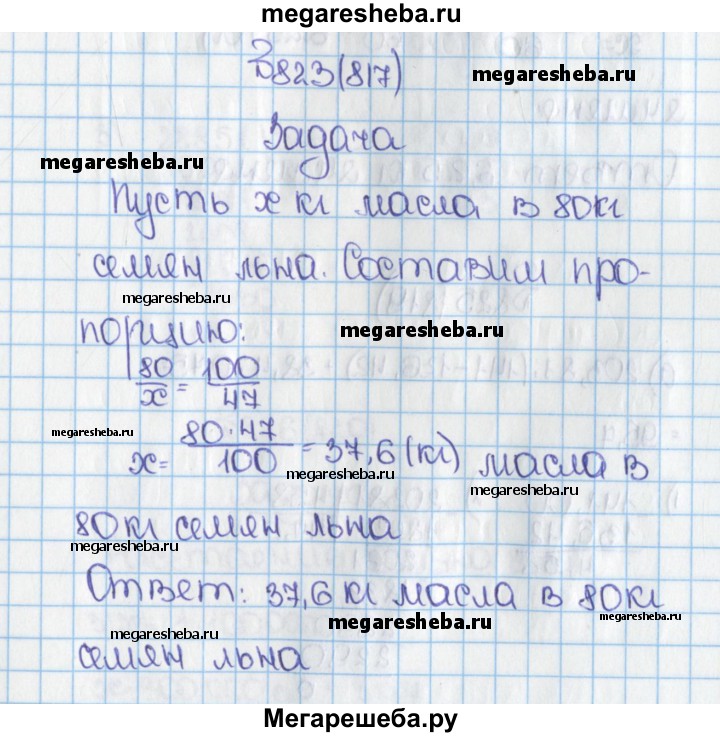 megaresheba.ru
В823(817)
megaresheba.ru
Задача
megaresheba.ru
Пусть x кг масла в 80кг
семян льна. Составим про-
megaresheba.ru
порцию:
megaresheba.ru
80/x = 100/47
megaresheba.ru
x = 80·47/100 = 37,6 (кг) масла в
megaresheba.ru
megaresheba.ru
80кг семян льна
megaresheba.ru
Ответ: 37,6 кг масла в 80кг
megaresheba.ru
megaresheba.ru
megaresheba.ru
семян льна
Мегарешеба.ру